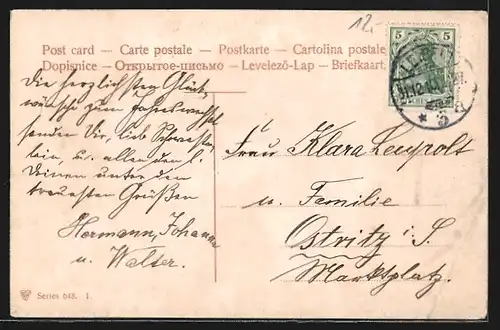 12,-
Post card - Carte postale - Postkarte - Cartolina postale
Dopisnice - Открытое-письмо - Levelező-Lap - Briefkaart.
5 5
Die herzlichsten Glück-
wünsche zum Jahreswechsel
sendet Dir, lieb Schwester-
lein, u. allen den l.
Deinen unter den
treuesten Grüßen
Hermann, Johanna
u. Walter.
Frau Klara Leupolt
u. Familie
Ostritz i. S.
Marktplatz.
Series 648. 1.